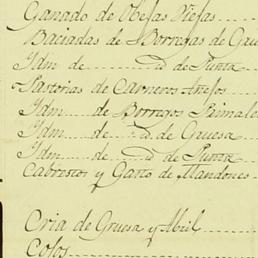 Ganado de Obejas Viejas
Baciadas de Borregas de Grue
Idm de d de Punta
Pastorias de Carneros Añejos
Idm de Borregos Primale
Idm de d de Gruesa
Idm de d de Punta
Cabrestos y Gano de Mandones
Cria de Gruesa y Abril
Cofos